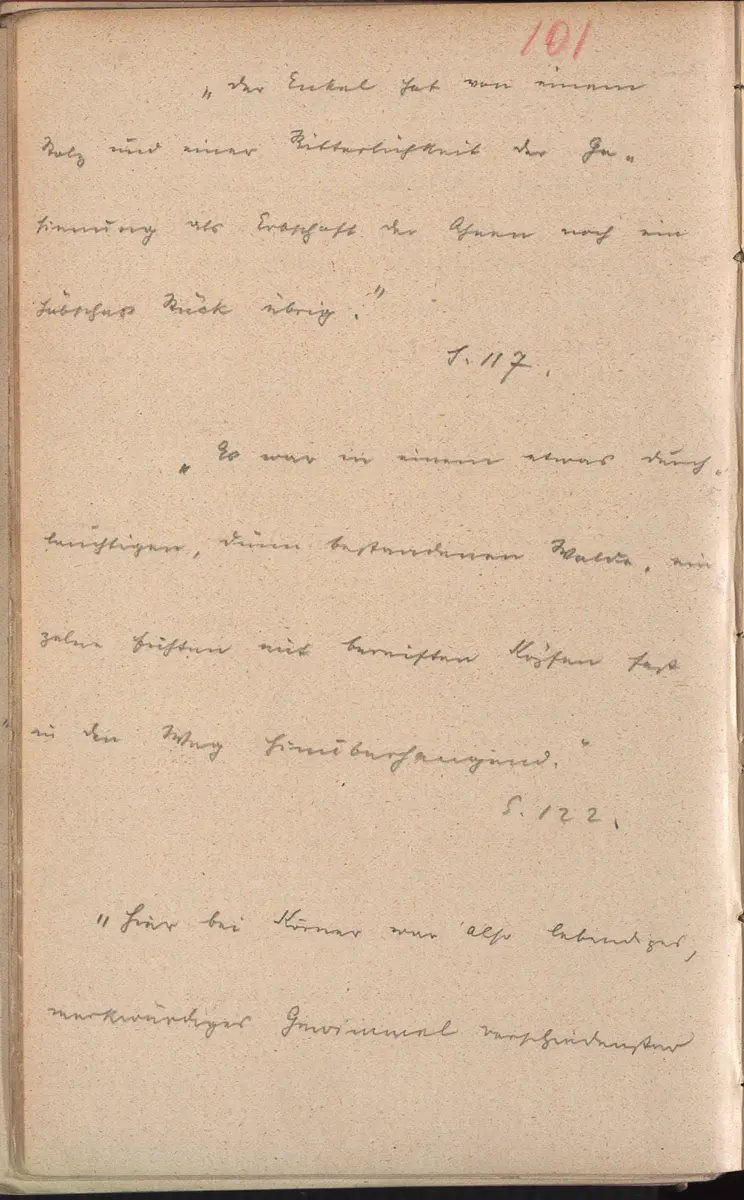 101
„der Enkel hat von einem
Stolz und einer Ritterlichkeit der Ge„
sinnung als Erbschaft der Ahnen noch ein
hübsches Stück übrig."
S. 117.
„Es war in einem etwas durch„
leuchtigen, dünn bestandenen Walde, ein
zelne Fichten mit bereiften Köpfen fast
in den Weg hinüberhangend."
S. 122.
„Hier bei Körner war also lebendiges,
merkwürdiges Gewimmel verschiedenster